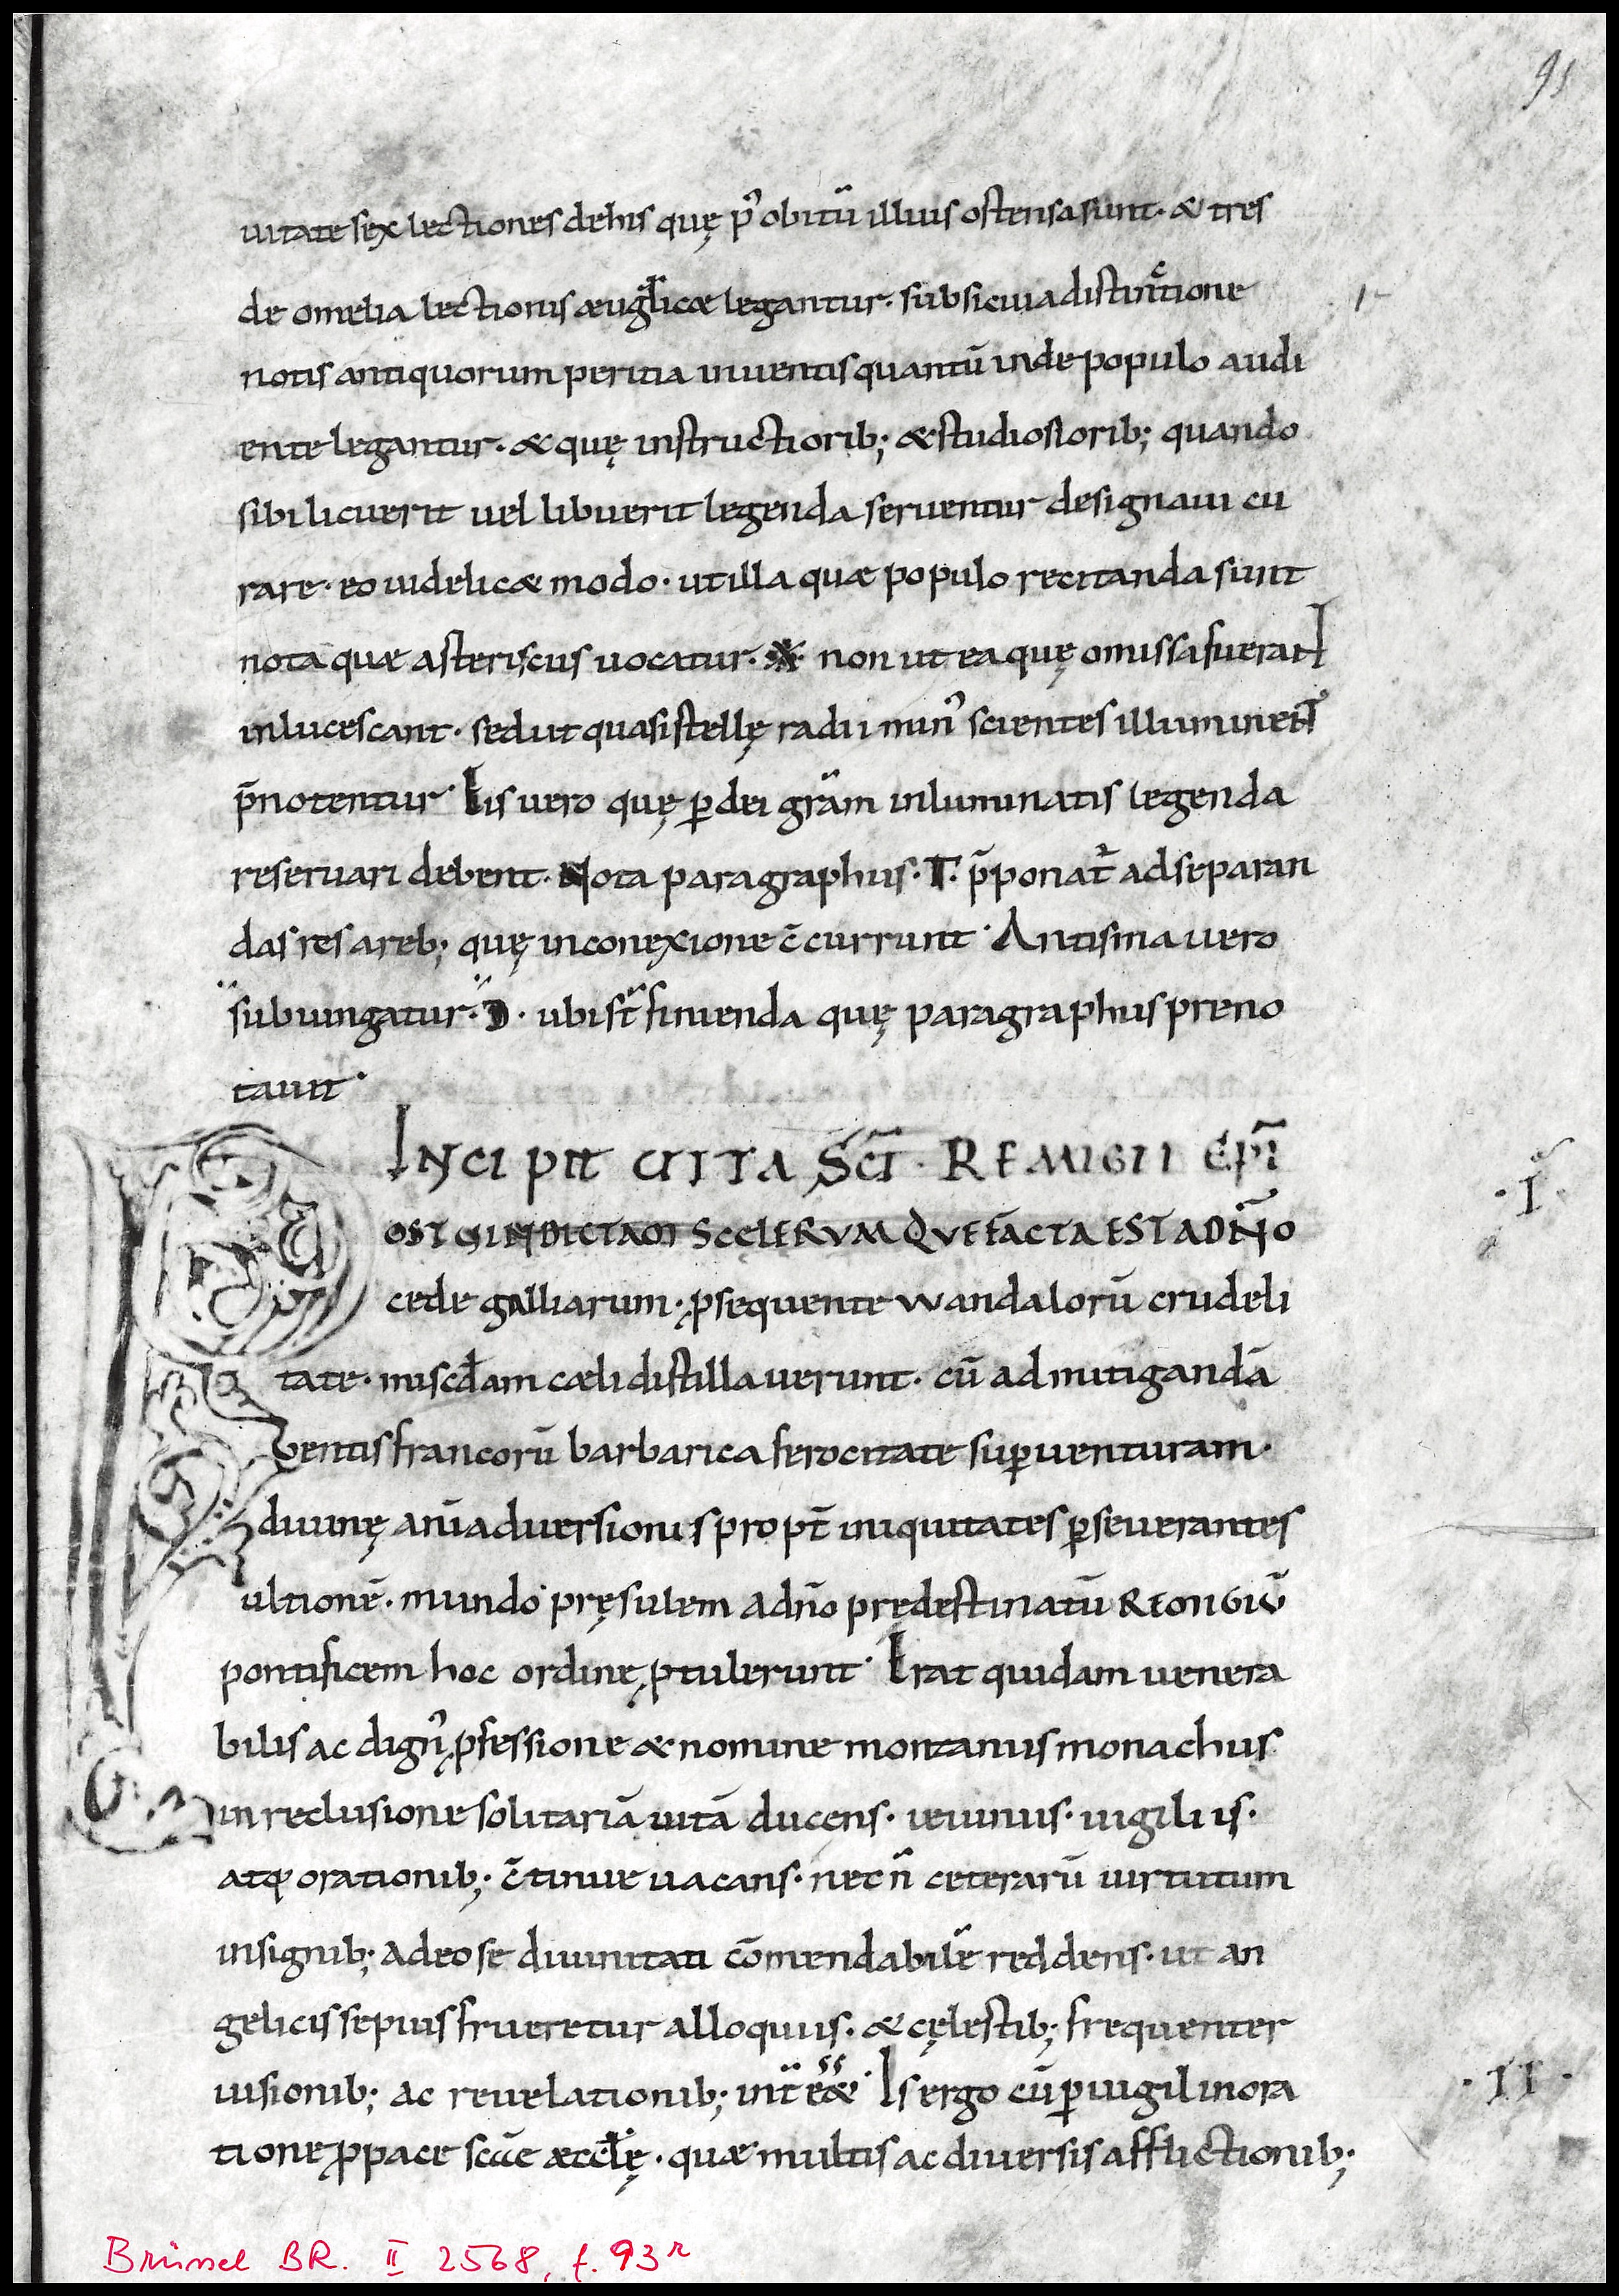 93
uitate sex lectiones de his quę p᾿ obitū illius ostensa sunt · & tres
de omelia lectionis æuglicæ legantur · sub sicuia distinctione
notis antiquorum peritia inuentis quantū inde populo audi
ente legantur · & quę instructiorib; & studiosiorib; quando
sibi licuerit uel libuerit legenda seruentur designaui cu
rare · eo uidelicæ modo · ut illa quæ populo recitanda sunt
nota quæ asteriscus uocatur · ※ non ut ea quę omissa fuerant
inlucescant · sed ut quasi stellę radii min᾿ scientes illuminent
p̄notentur · His uero quę ꝑ dei grām inluminatis legenda
reseruari debent · Nota paragraphus · Γ · p̄ponat᷑ ad separan
das res a reb; quę in conexione c̄currunt · Antisima uero
subiungatur · Ɔ · ubi st̄ finienda quę paragraphus preno
tauit ·
INCIPIT UITA SC̄I · REMIGII EPĪ
·I·
OST UINDICTAM SCELERVM QVE FACTA EST A DÑO
cede galliarum · ꝓsequente wandalorū crudeli
tate · miscđam cæli distillauerunt · cū ad mitigandā
Gentis francorū barbarica ferocitate suꝑuenturam ·
diuinę anīaduersionis propt̄ iniquitates ꝑseuerantes
ultionē · mundo pręsulem a dño predestinatū REMIGIŪ
pontificem hoc ordine ꝓtulerunt · Erat quidam uenera
bilis ac dign᾿ ꝓfessione & nomine montanus monachus
in reclusione solitariā uitā ducens · ieiuniis · uigiliis ·
atq; orationib; · c̄tinue uacans · necn̄ ceterarū uirtutum
insignib; adeo se diuinitati cōmendabilē reddens · ut an
gelicis sepius frueretur alloquiis · & cęlestib; frequenter
uisionib; ac reuelationib; int̄eēæ · Is ergo cū ꝑuigil in ora
·II·
tione ꝓ pace scæ æccłę · quæ multis ac diuersis afflictionib;
Brüssel BR. II 2568, f. 93r